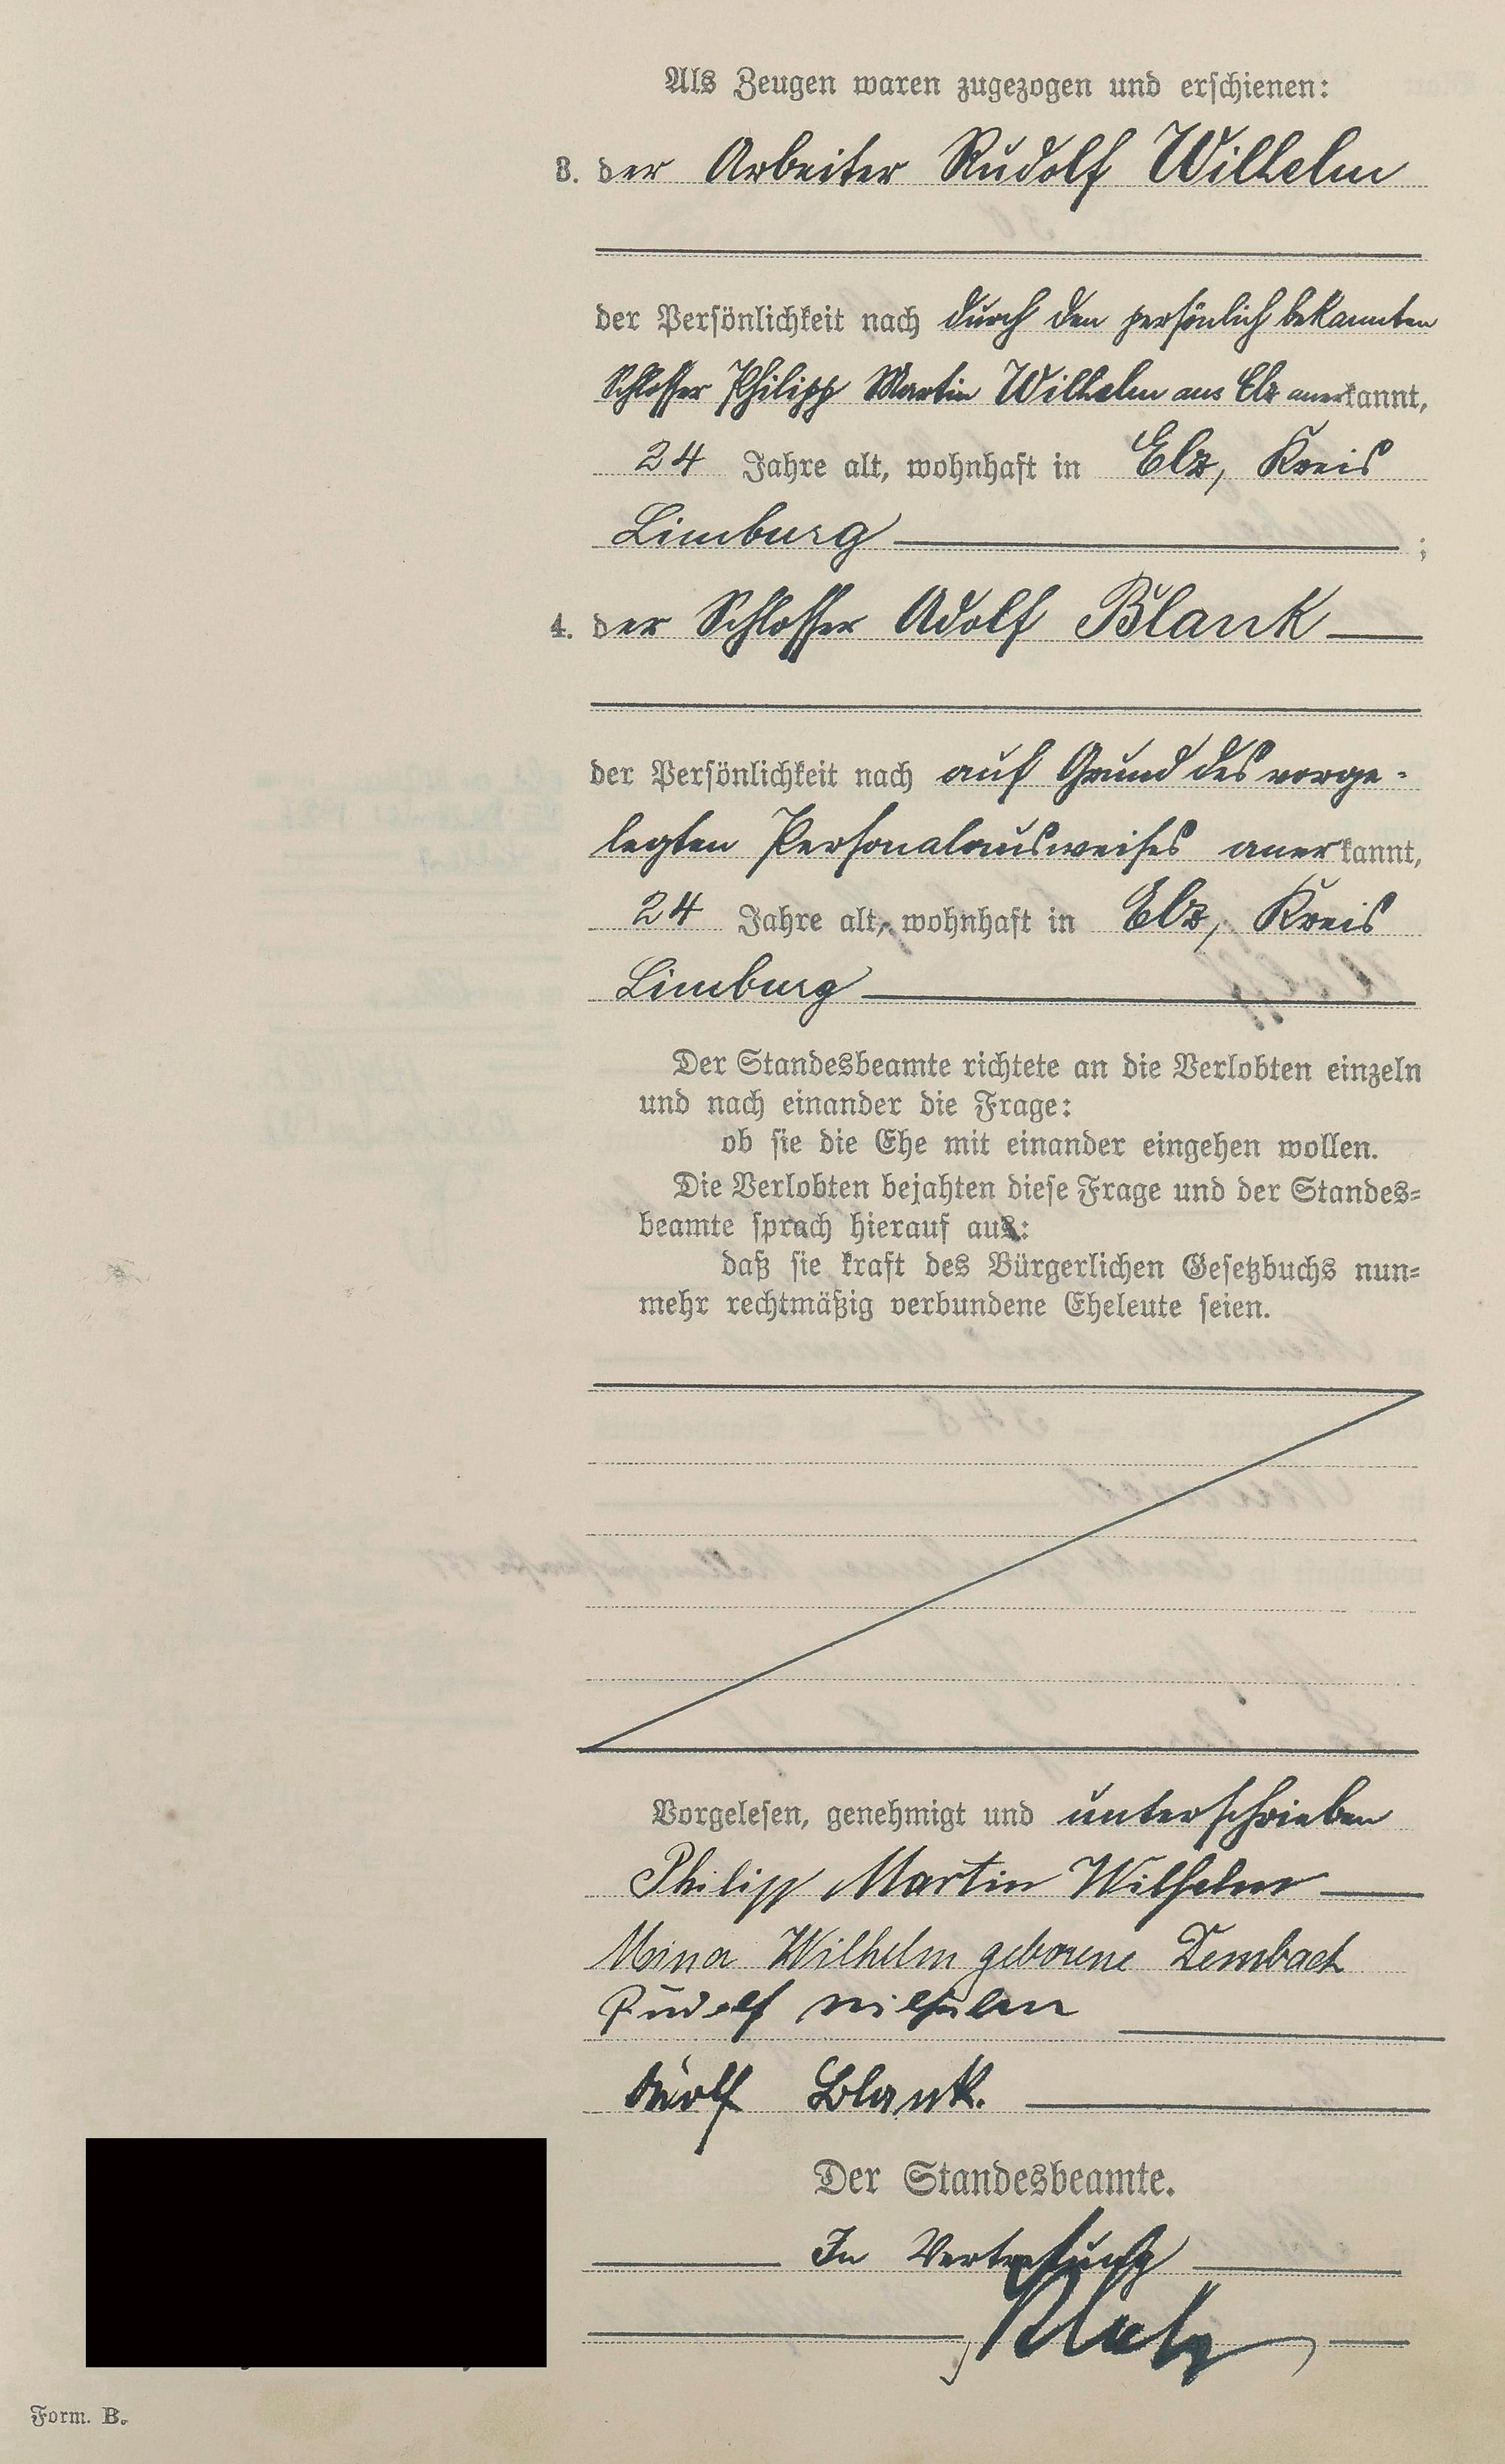 Als Zeugen waren zugezogen und erschienen:
3. der Arbeiter Rudolf Wilhelm
der Persönlichkeit nach durch den persönlich bekannten
Schlosser Philipp Martin Wilhelm aus Elz anerkannt,
24 Jahre alt, wohnhaft in Elz, Kreis
Limburg ;
4. der Schlosser Adolf Blank
der Persönlichkeit nach auf Grund des vorge-
legten Personalausweises anerkannt,
24 Jahre alt, wohnhaft in Elz, Kreis
Limburg
Der Standesbeamte richtete an die Verlobten einzeln
und nach einander die Frage:
ob sie die Ehe mit einander eingehen wollen.
Die Verlobten bejahten diese Frage und der Standes-
beamte sprach hierauf aus:
daß sie kraft des Bürgerlichen Gesetzbuchs nun-
mehr rechtmäßig verbundene Eheleute seien.
Vorgelesen, genehmigt und unterschrieben
Philipp Martin Wilhelm
Mina Wilhelm geborene Dembach
Rudolf Wilhelm
Adolf Blank.
Der Standesbeamte.
In Vertretung
Form. B.